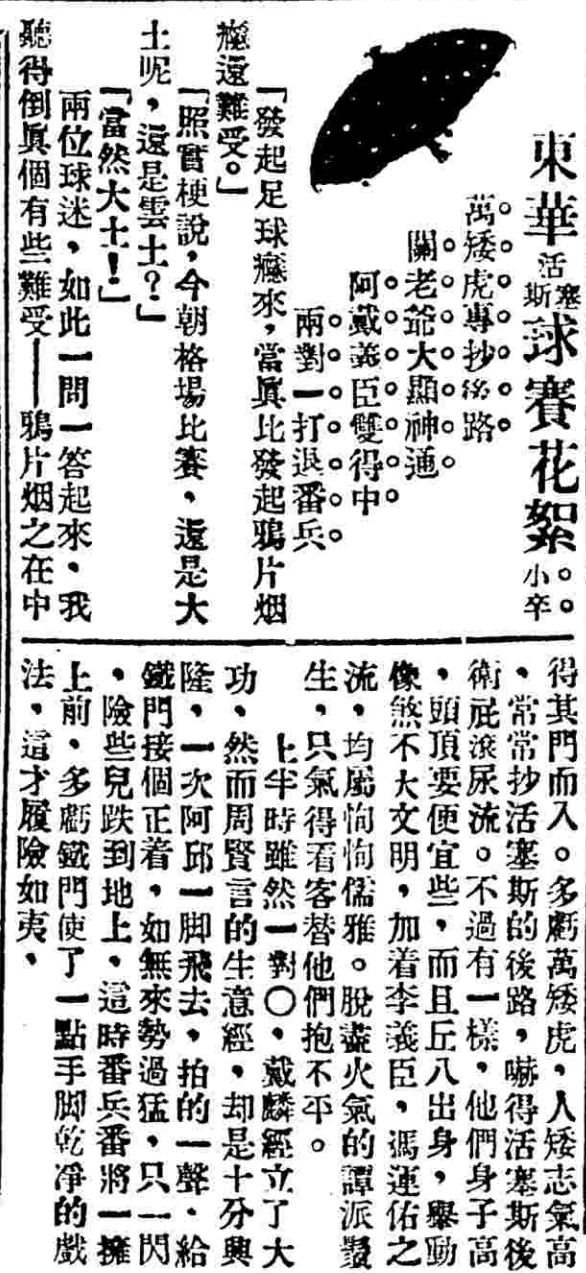 東華活塞斯球賽花絮 小卒
萬矮虎專抄後路
關老爺大顯神通
阿戴義臣雙得中
兩對一打退番兵
「發起足球癮來，當眞比發起鴉片烟
癮還難受。」
「照實梗說，今朝格場比賽，還是大
土呢，還是雲土？」
「當然大土！」
兩位球迷，如此一問一答起來，我
聽得倒眞個有些難受——鴉片烟之在中
得其門而入。多虧萬矮虎，人矮志氣高
，常常抄活塞斯的後路，嚇得活塞斯後
衛屁滾尿流。不過有一樣，他們身子高
，頭頂要便宜些，而且丘八出身，舉動
像煞不大文明，加着李義臣，馮運佑之
流，均屬恂恂儒雅。脫盡火氣的譚派鬚
生，只氣得看客替他們抱不平。
上半時雖然一對〇，戴麟經立了大
功，然而周賢言的生意經，却是十分興
隆，一次阿邱一脚飛去，拍的一聲，給
鐵門接個正着，如無來勢過猛，只一閃
，險些兒跌到地上，這時番兵番將一擁
上前，多虧鐵門使了一點手脚乾凈的戲
法，這才履險如夷，